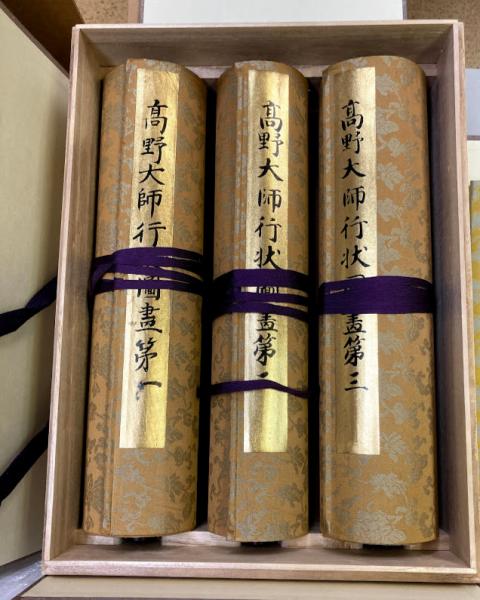 髙野大師行状圖畫第一
髙野大師行状圖畫第二
髙野大師行状圖畫第三